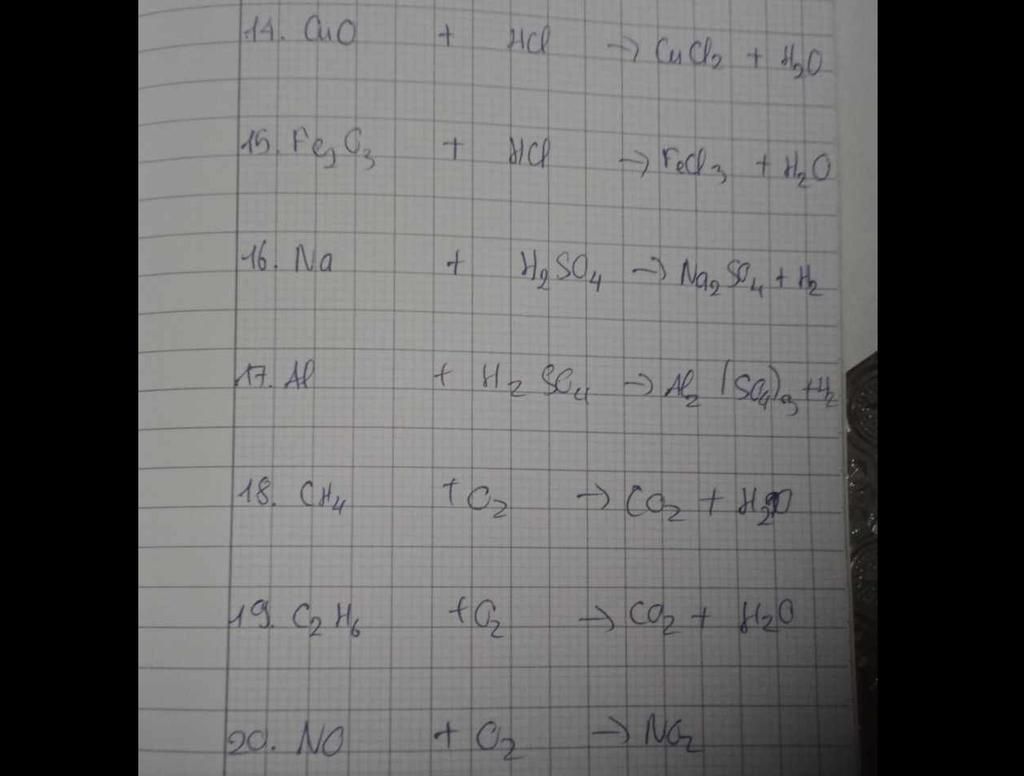 14. CuO + HCl → CuCl₂ + H₂O
15. Fe₂O₃ + HCl → FeCl₃ + H₂O
16. Na + H₂SO₄ → Na₂SO₄ + H₂
17. Al + H₂SO₄ → Al₂(SO₄)₃ + H₂
18. CH₄ + O₂ → CO₂ + H₂O
19. C₂H₆ + O₂ → CO₂ + H₂O
20. NO + O₂ → NO₂